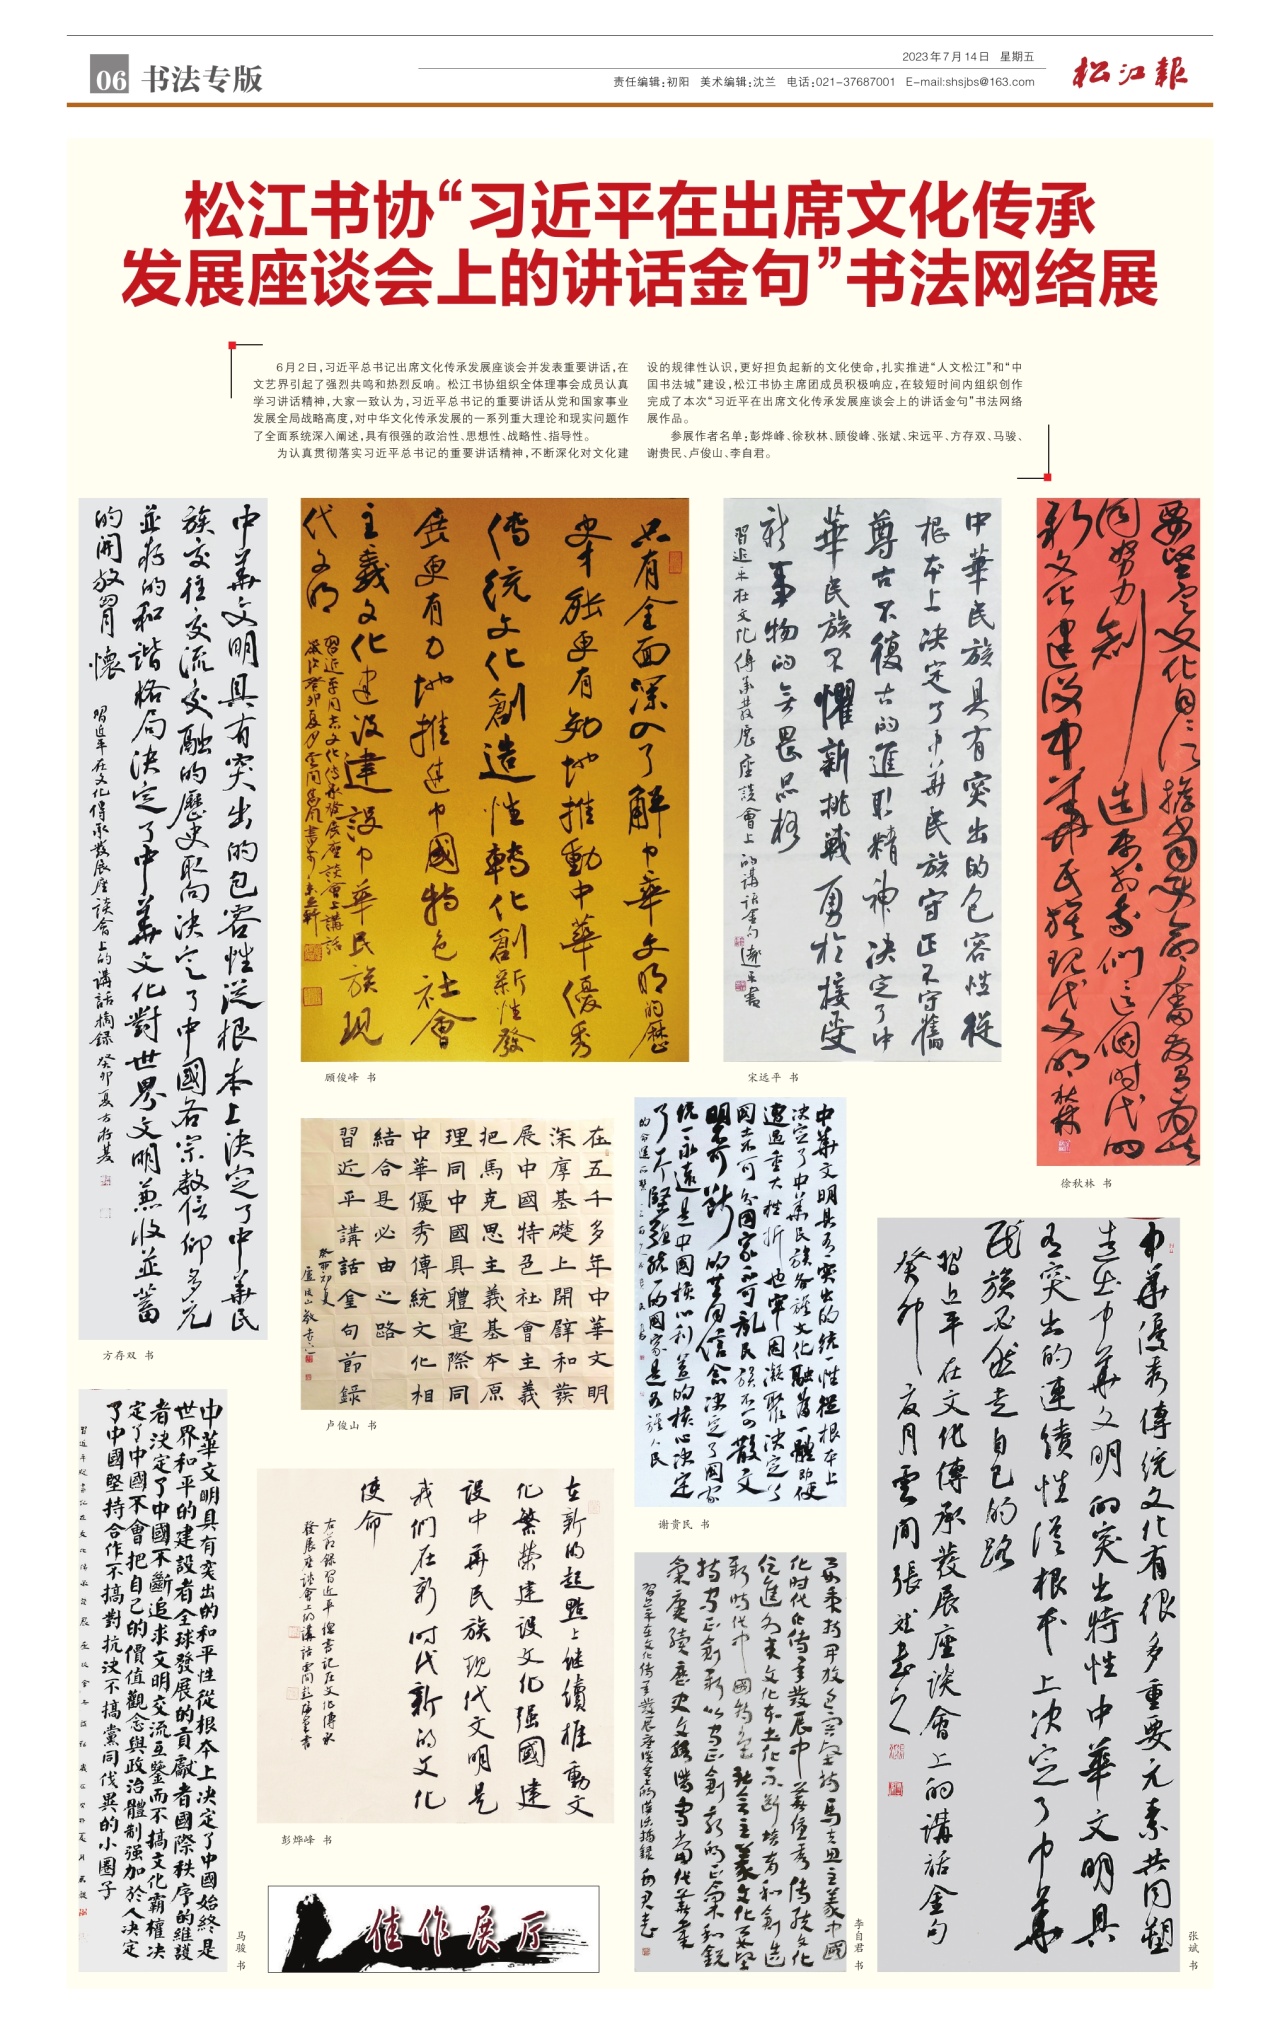 06 书法专版
2023年7月14日 星期五
责任编辑:初阳 美术编辑:沈兰 电话:021-37687001 E-mail:shsjbs@163.com
松江報
松江书协“习近平在出席文化传承
发展座谈会上的讲话金句”书法网络展
6月2日,习近平总书记出席文化传承发展座谈会并发表重要讲话,在
文艺界引起了强烈共鸣和热烈反响。松江书协组织全体理事会成员认真
学习讲话精神,大家一致认为,习近平总书记的重要讲话从党和国家事业
发展全局战略高度,对中华文化传承发展的一系列重大理论和现实问题作
了全面系统深入阐述,具有很强的政治性、思想性、战略性、指导性。
为认真贯彻落实习近平总书记的重要讲话精神,不断深化对文化建
设的规律性认识,更好担负起新的文化使命,扎实推进“人文松江”和“中
国书法城”建设,松江书协主席团成员积极响应,在较短时间内组织创作
完成了本次“习近平在出席文化传承发展座谈会上的讲话金句”书法网络
展作品。
参展作者名单:彭烨峰、徐秋林、顾俊峰、张斌、宋远平、方存双、马骏、
谢贵民、卢俊山、李自君。
中华文明具有突出的包容性从根本上决定了中华民
族交往交流交融的歷史取向决定了中國各宗教信仰多元
並存的和谐格局决定了中華文化對世界文明兼收並蓄
的開放胃懷
習近平在文化傳承發展座談會上的講話摘録
方存双 书
只有全面深入了解中华文明的歷
史才能更有効地推動中華優秀
傳統文化創造性轉化創新性發
展更有力地推進中國特色社會
主義文化建设建設中華民族現
代文明
習近平同志文化传承發展座談會上講話
顾俊峰 书
中華民族具有突出的包容性從
根本上决定了中华民族守正不守舊
尊古不復古的進取精神决定了中
華民族不懼新挑戰勇於接受
新事物的無畏品格
習近平在文化傳承發展座談會上的講話金句
宋远平 书
要堅定文化自信擔當使命奮發有為共
同努力創造属於我們這個时代的
新文化建设中華民族现代文明
徐秋林 书
在五千多年中華文明
深厚基礎上開闢和發
展中國特色社會主義
把馬克思主義基本原
理同中國具體實際同
中華優秀傳統文化相
結合是必由之路
習近平講話金句節録
卢俊山 书
中华文明具有突出的统一性從根本上
决定了中华民族各族文化融為一體即使
遭遇重大挫折也牢固凝聚决定了
國土不可分國家不可乱民族不可散文
明不可斷的共同信念决定了國家
统一永遠是中國核心利益的核心决定
了一个堅强统一的國家是各族人民
谢贵民 书
中华優秀傳统文化有很多重要元素共同塑
造出中华文明的突出特性中華文明具
有突出的連續性從根本上决定了中華
民族必然走自己的路
習近平在文化傳承發展座談會上的講話金句
癸卯夏月雲间張斌書
张斌 书
中华文明具有突出的和平性從根本上决定了中國始終是
世界和平的建設者全球發展的貢獻者國際秩序的維護
者決定了中國不斷追求文明交流互鑒而不搞文化霸權決
定了中國不會把自己的價值觀念與政治體制强加於人決定
了中國堅持合作不搞對抗決不搞黨同伐異的小圈子
马骏 书
在新的起點上继續推動文
化繁荣建设文化强國建
設中华民族现代文明是
我們在新时代新的文化
使命
右節録習近平總書記在文化傳承
發展座談會上的講話
彭烨峰 书
李自君 书
佳作展厅